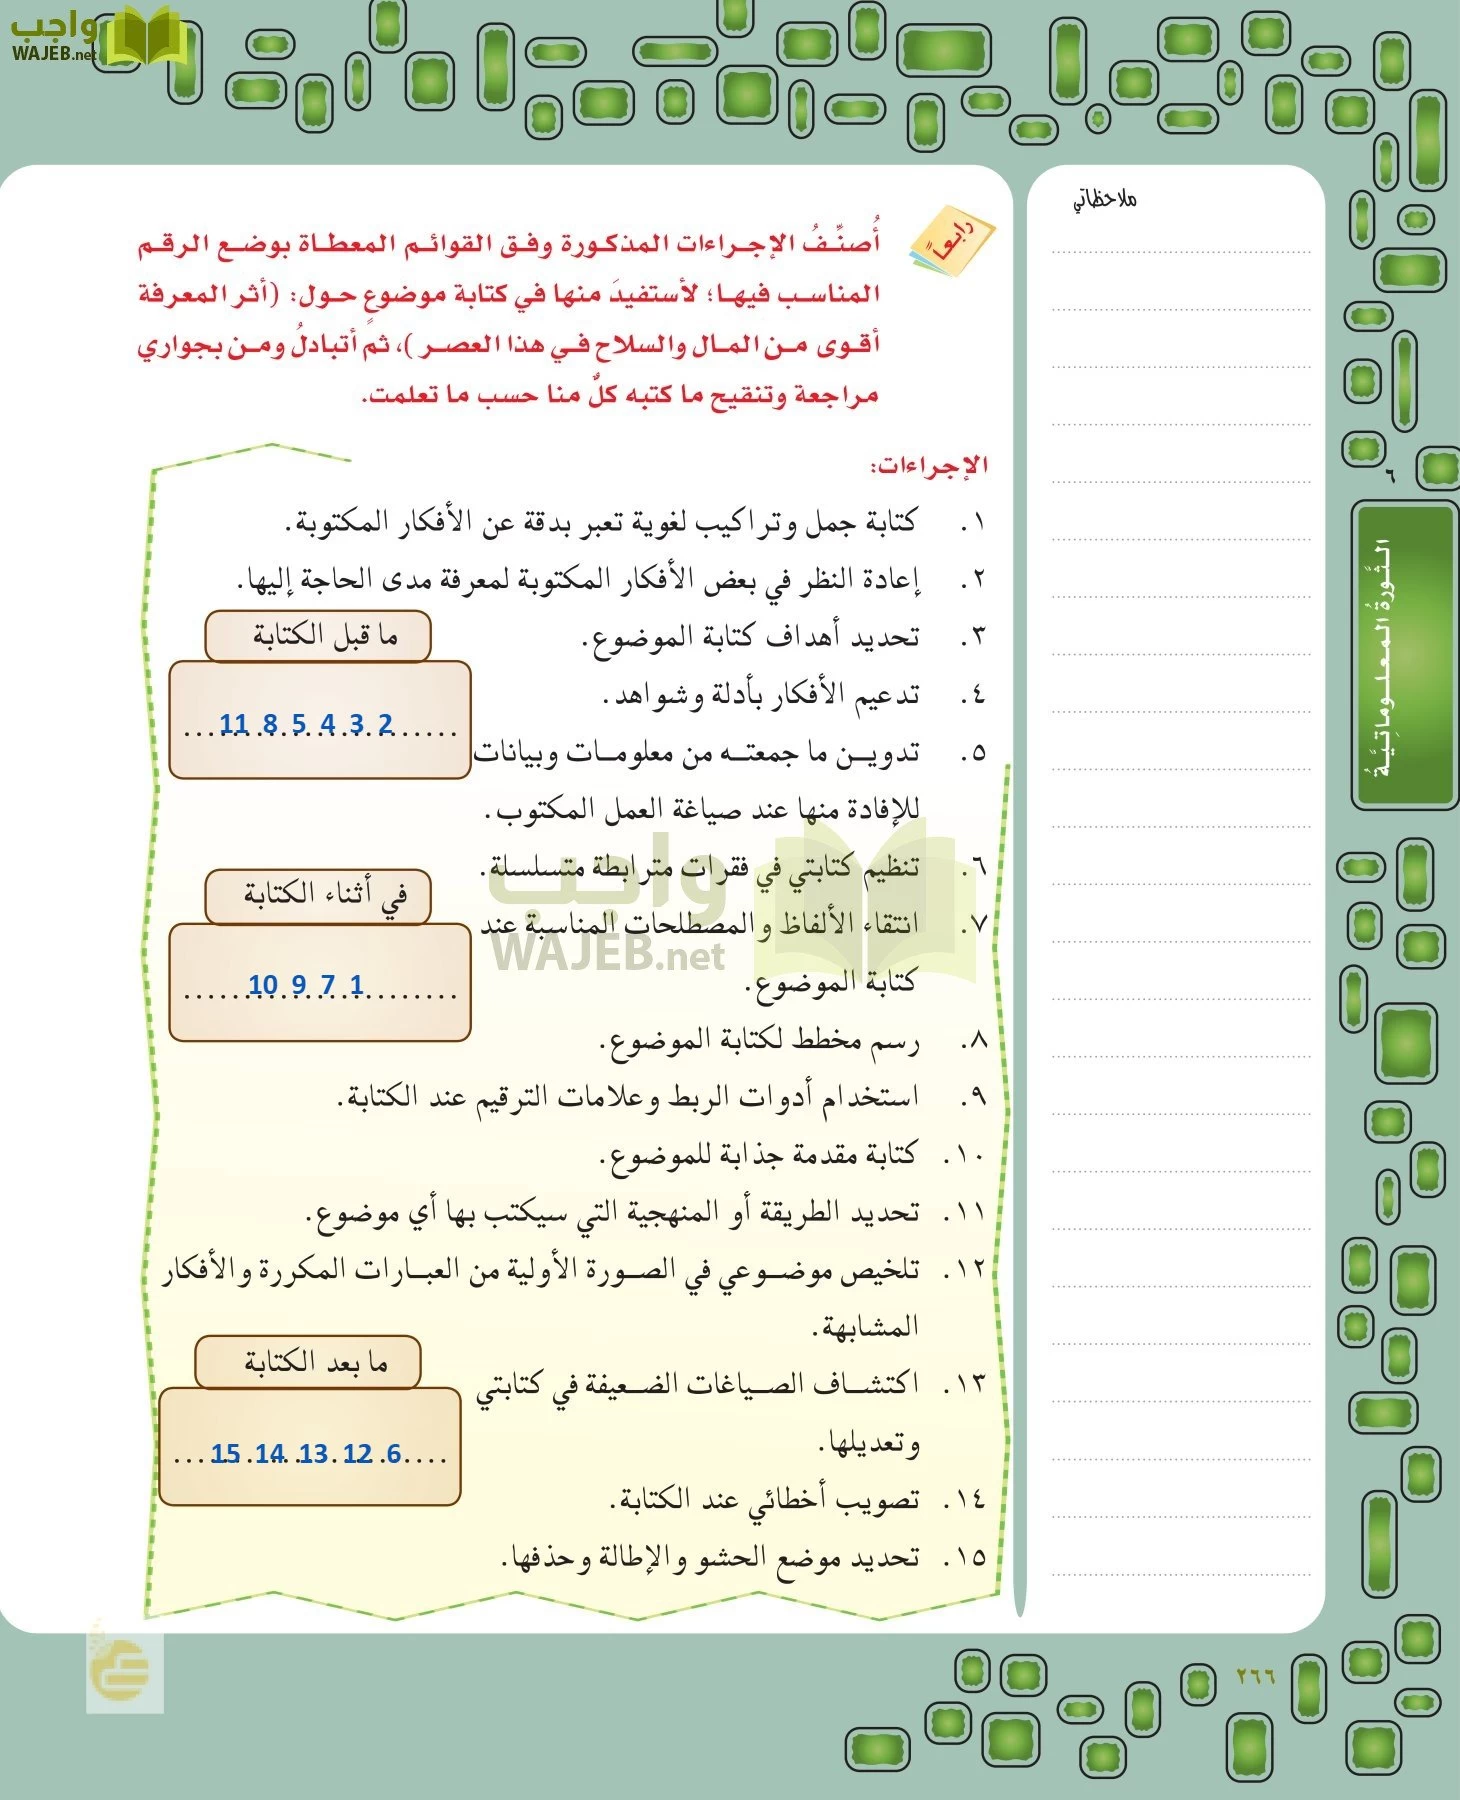 واجب
WAJEB.net
ملاحظاتي
رابعاً
أُصنِّفُ الإجراءات المذكورة وفق القوائم المعطاة بوضع الرقم
المناسب فيها؛ لأستفيدَ منها في كتابة موضوعٍ حول: (أثر المعرفة
أقوى من المال والسلاح في هذا العصر )، ثم أتبادلُ ومن بجواري
مراجعة وتنقيح ما كتبه كلٌ منا حسب ما تعلمت.
الإجراءات:
١. كتابة جمل وتراكيب لغوية تعبر بدقة عن الأفكار المكتوبة.
٢. إعادة النظر في بعض الأفكار المكتوبة لمعرفة مدى الحاجة إليها.
٣. تحديد أهداف كتابة الموضوع.
ما قبل الكتابة
٤. تدعيم الأفكار بأدلة وشواهد.
11 8 5 4 3 2
٥. تدويـن ما جمعتـه من معلومـات وبيانات
للإفادة منها عند صياغة العمل المكتوب.
٦. تنظيم كتابتي في فقرات مترابطة متسلسلة.
في أثناء الكتابة
٧. انتقاء الألفاظ والمصطلحات المناسبة عند
كتابة الموضوع.
10 9 7 1
واجب
WAJEB.net
٨. رسم مخطط لكتابة الموضوع.
٩. استخدام أدوات الربط وعلامات الترقيم عند الكتابة.
١٠. كتابة مقدمة جذابة للموضوع.
١١. تحديد الطريقة أو المنهجية التي سيكتب بها أي موضوع.
١٢. تلخيص موضـوعي في الصـورة الأولية من العبـارات المكررة والأفكار
المشابهة.
ما بعد الكتابة
١٣. اكتشـاف الصـياغات الضـعيفة في كتابتي
وتعديلها.
15 14 13 12 6
١٤. تصويب أخطائي عند الكتابة.
١٥. تحديد موضع الحشو والإطالة وحذفها.
٦
الثَّورةُ المـعـلـومـاتـيَّـةُ
٢٦٦